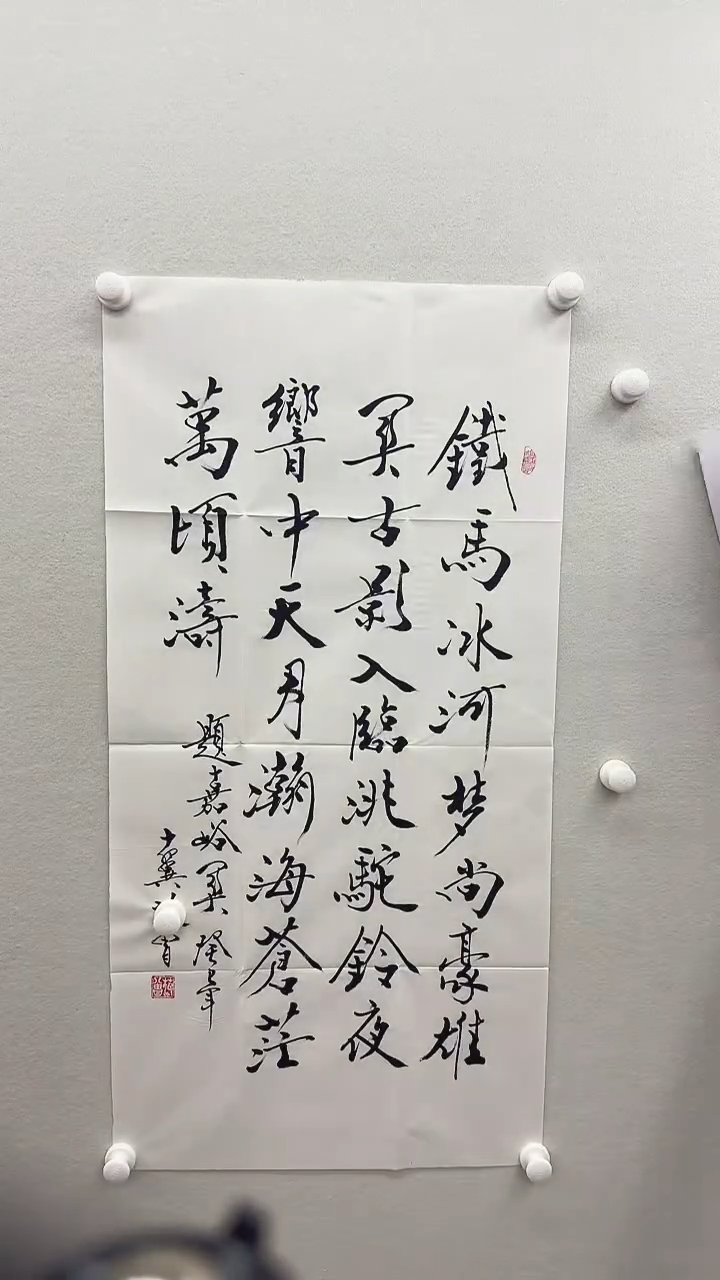 鐵馬冰河梦尚豪雄
关古影入臨洮駝鈴夜
響中天月瀚海蒼茫
萬頃濤
題嘉峪关 癸卯年
士翼